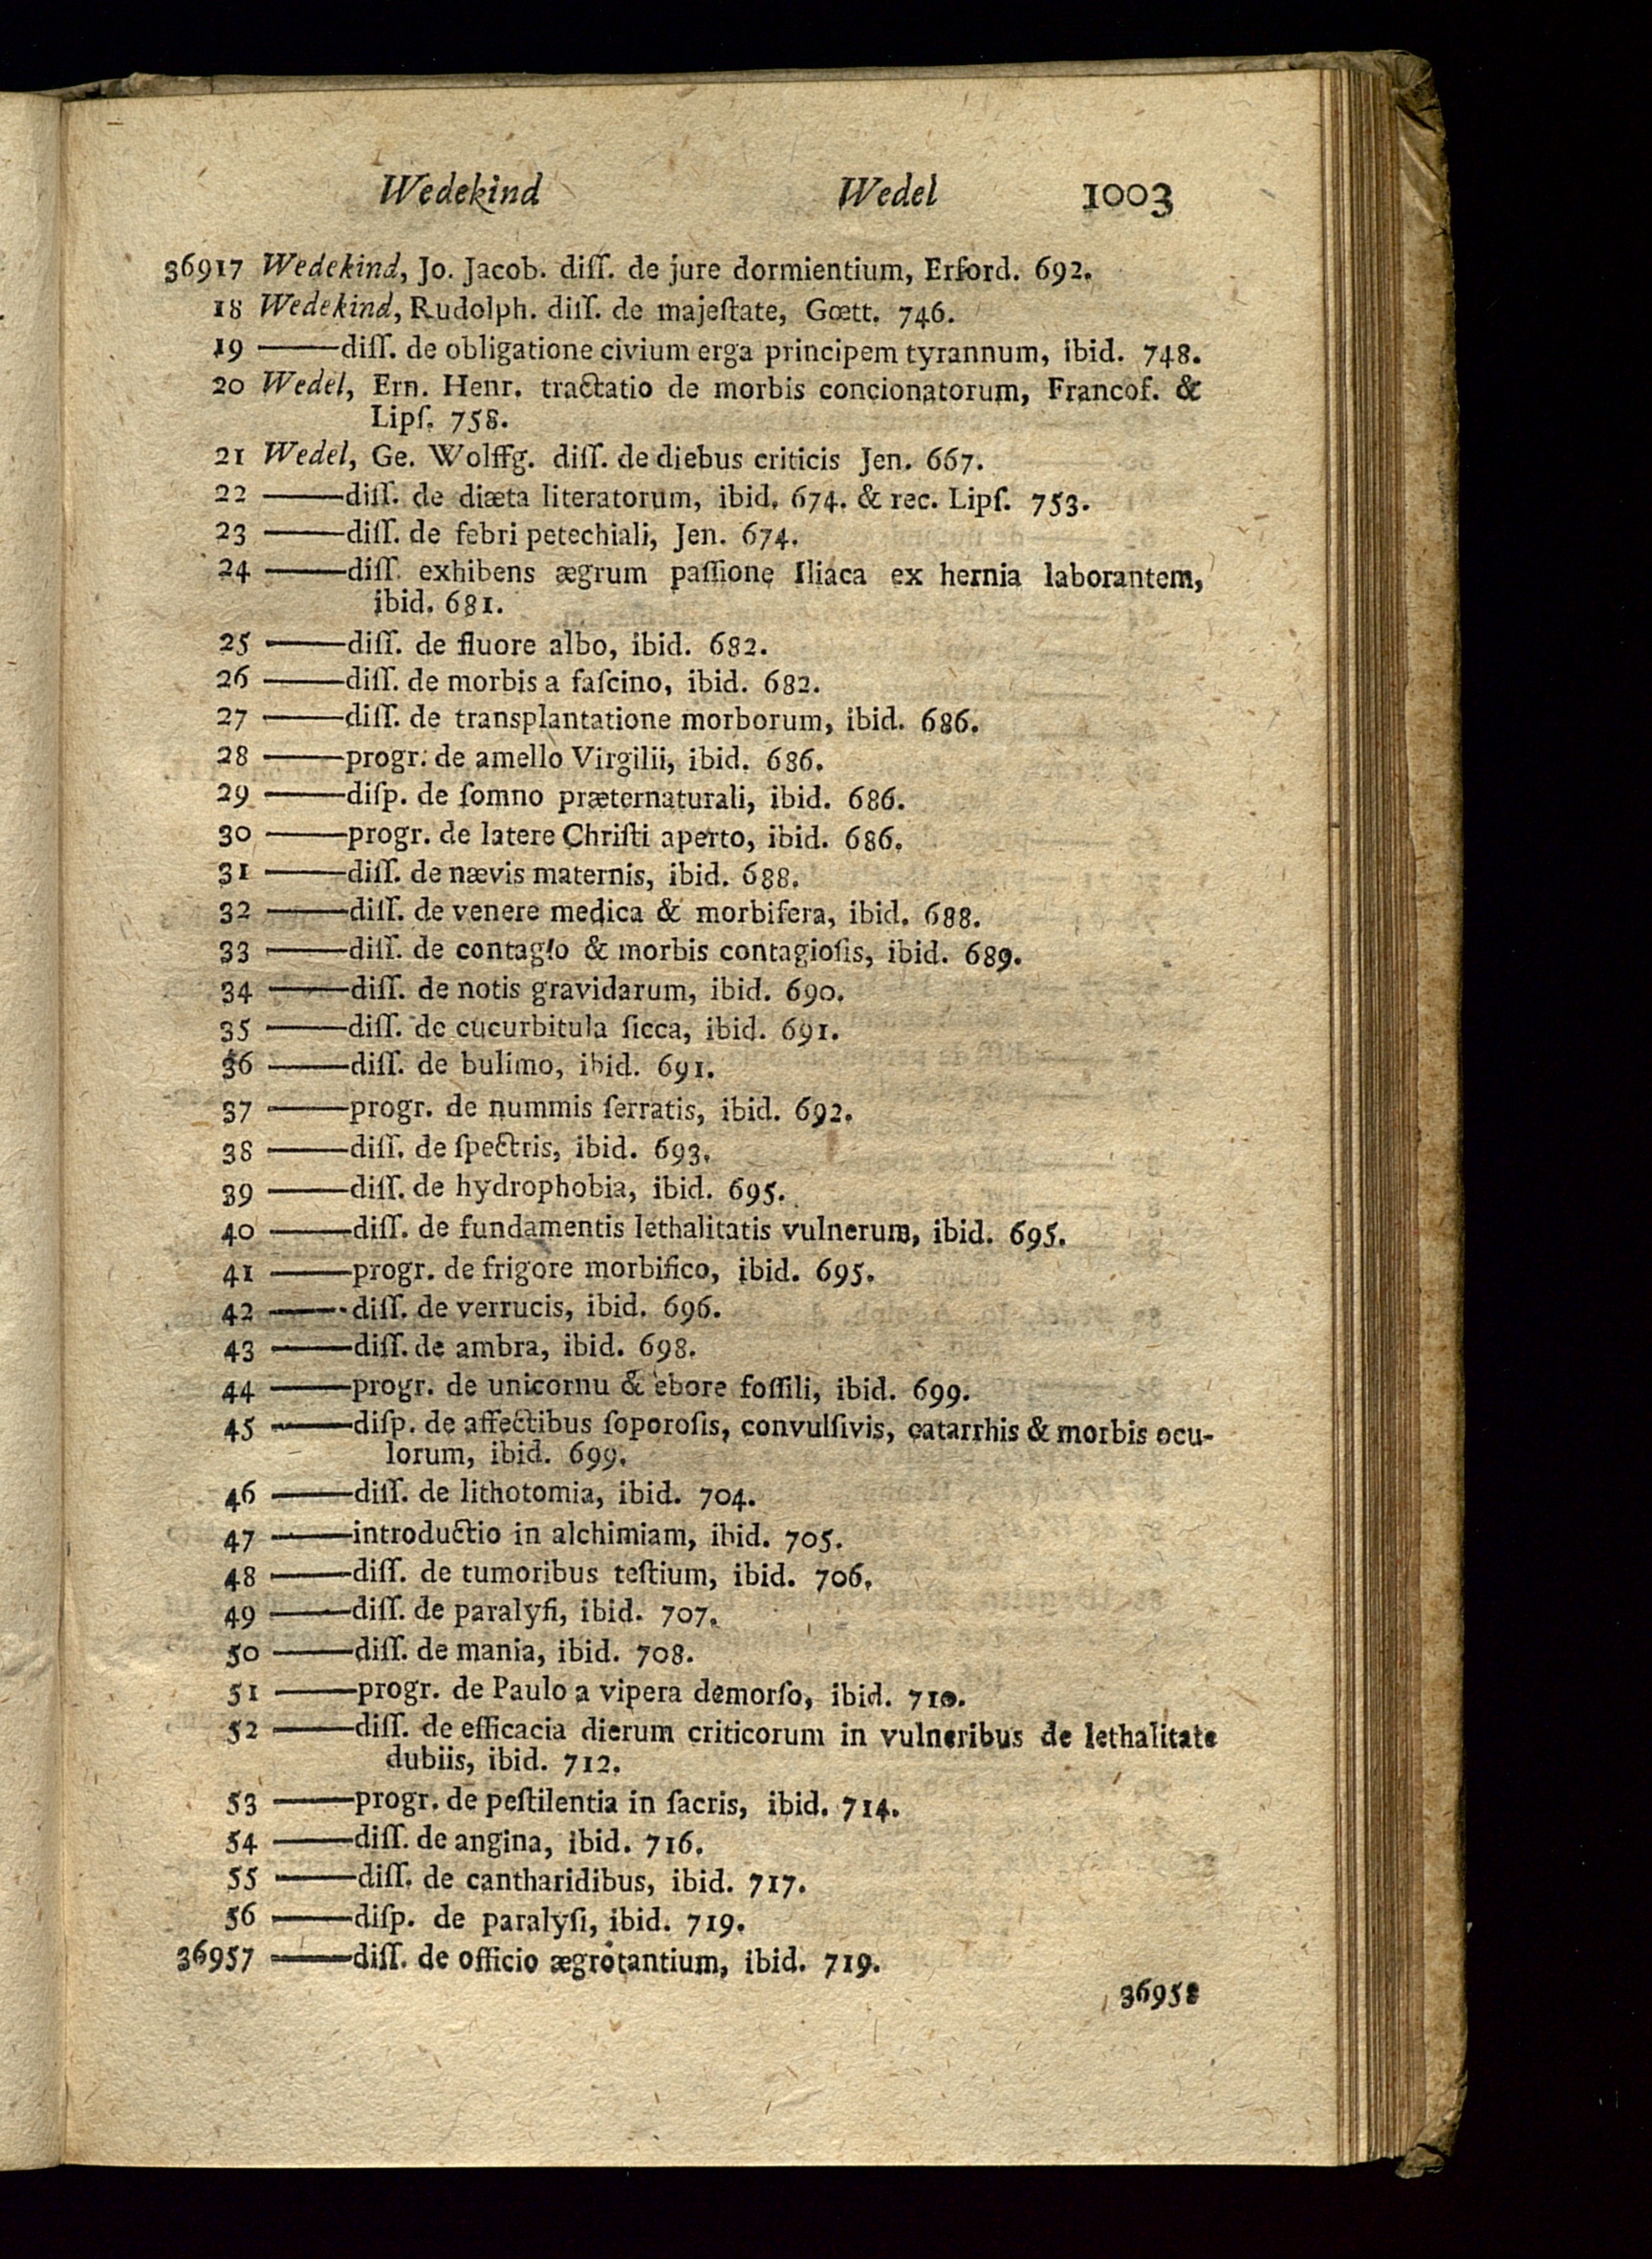 Wedekind Wedel 1003
36917 Wedekind, Jo. Jacob. diſſ. de jure dormientium, Erford. 692.
18 Wedekind, Rudolph. diſſ. de majeſtate, Gœtt. 746.
19 ——diſſ. de obligatione civium erga principem tyrannum, ibid. 748.
20 Wedel, Ern. Henr. tractatio de morbis concionatorum, Francof. &
Lipſ. 758.
21 Wedel, Ge. Wolffg. diſſ. de diebus criticis Jen. 667.
22 ——diſſ. de diæta literatorum, ibid. 674. & rec. Lipſ. 753.
23 ——diſſ. de febri petechiali, Jen. 674.
24 ——diſſ. exhibens ægrum paſſione Iliaca ex hernia laborantem,
ibid. 681.
25 ——diſſ. de fluore albo, ibid. 682.
26 ——diſſ. de morbis a faſcino, ibid. 682.
27 ——diſſ. de transplantatione morborum, ibid. 686.
28 ——progr. de amello Virgilii, ibid. 686.
29 ——diſp. de ſomno præternaturali, ibid. 686.
30 ——progr. de latere Chriſti aperto, ibid. 686.
31 ——diſſ. de nævis maternis, ibid. 688.
32 ——diſſ. de venere medica & morbifera, ibid. 688.
33 ——diſſ. de contagio & morbis contagioſis, ibid. 689.
34 ——diſſ. de notis gravidarum, ibid. 690.
35 ——diſſ. de cucurbitula ſicca, ibid. 691.
36 ——diſſ. de bulimo, ibid. 691.
37 ——progr. de nummis ſerratis, ibid. 692.
38 ——diſſ. de ſpectris, ibid. 693.
39 ——diſſ. de hydrophobia, ibid. 695.
40 ——diſſ. de fundamentis lethalitatis vulnerum, ibid. 695.
41 ——progr. de frigore morbifico, ibid. 695.
42 ——diſſ. de verrucis, ibid. 696.
43 ——diſſ. de ambra, ibid. 698.
44 ——progr. de unicornu & ebore foſſili, ibid. 699.
45 ——diſp. de affectibus ſoporoſis, convulſivis, catarrhis & morbis ocu-
lorum, ibid. 699.
46 ——diſſ. de lithotomia, ibid. 704.
47 ——introductio in alchimiam, ibid. 705.
48 ——diſſ. de tumoribus teſtium, ibid. 706.
49 ——diſſ. de paralyſi, ibid. 707.
50 ——diſſ. de mania, ibid. 708.
51 ——progr. de Paulo a vipera demorſo, ibid. 710.
52 ——diſſ. de efficacia dierum criticorum in vulneribus de lethalitate
dubiis, ibid. 712.
53 ——progr. de peſtilentia in ſacris, ibid. 714.
54 ——diſſ. de angina, ibid. 716.
55 ——diſſ. de cantharidibus, ibid. 717.
56 ——diſp. de paralyſi, ibid. 719.
36957 ——diſſ. de officio ægrotantium, ibid. 719.
36958